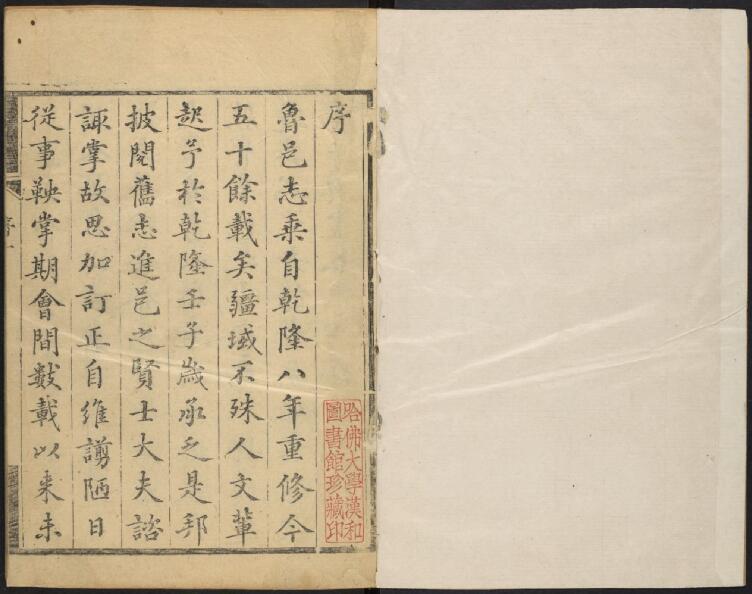 序
魯邑志乘自乾隆八年重修今
五十餘載矣疆域不殊人文輩
起予於乾隆壬子歲承乏是邦
披閱舊志進邑之賢士大夫諮
諏掌故思加訂正自維譾陋日
從事鞅掌期會間數載以來未
序
哈佛大學漢和
圖書館珍藏印